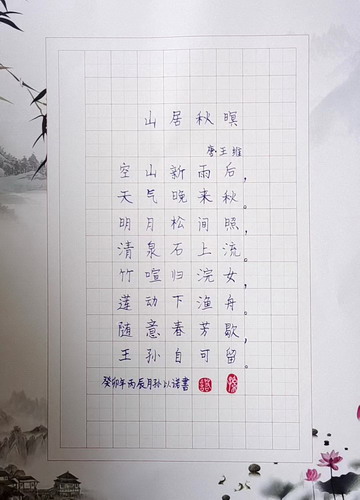 山居秋暝
唐王维
空山新雨后，
天气晚来秋。
明月松间照，
清泉石上流。
竹喧归浣女，
莲动下渔舟。
随意春芳歇，
王孙自可留。
癸卯年丙辰月孙以诺書